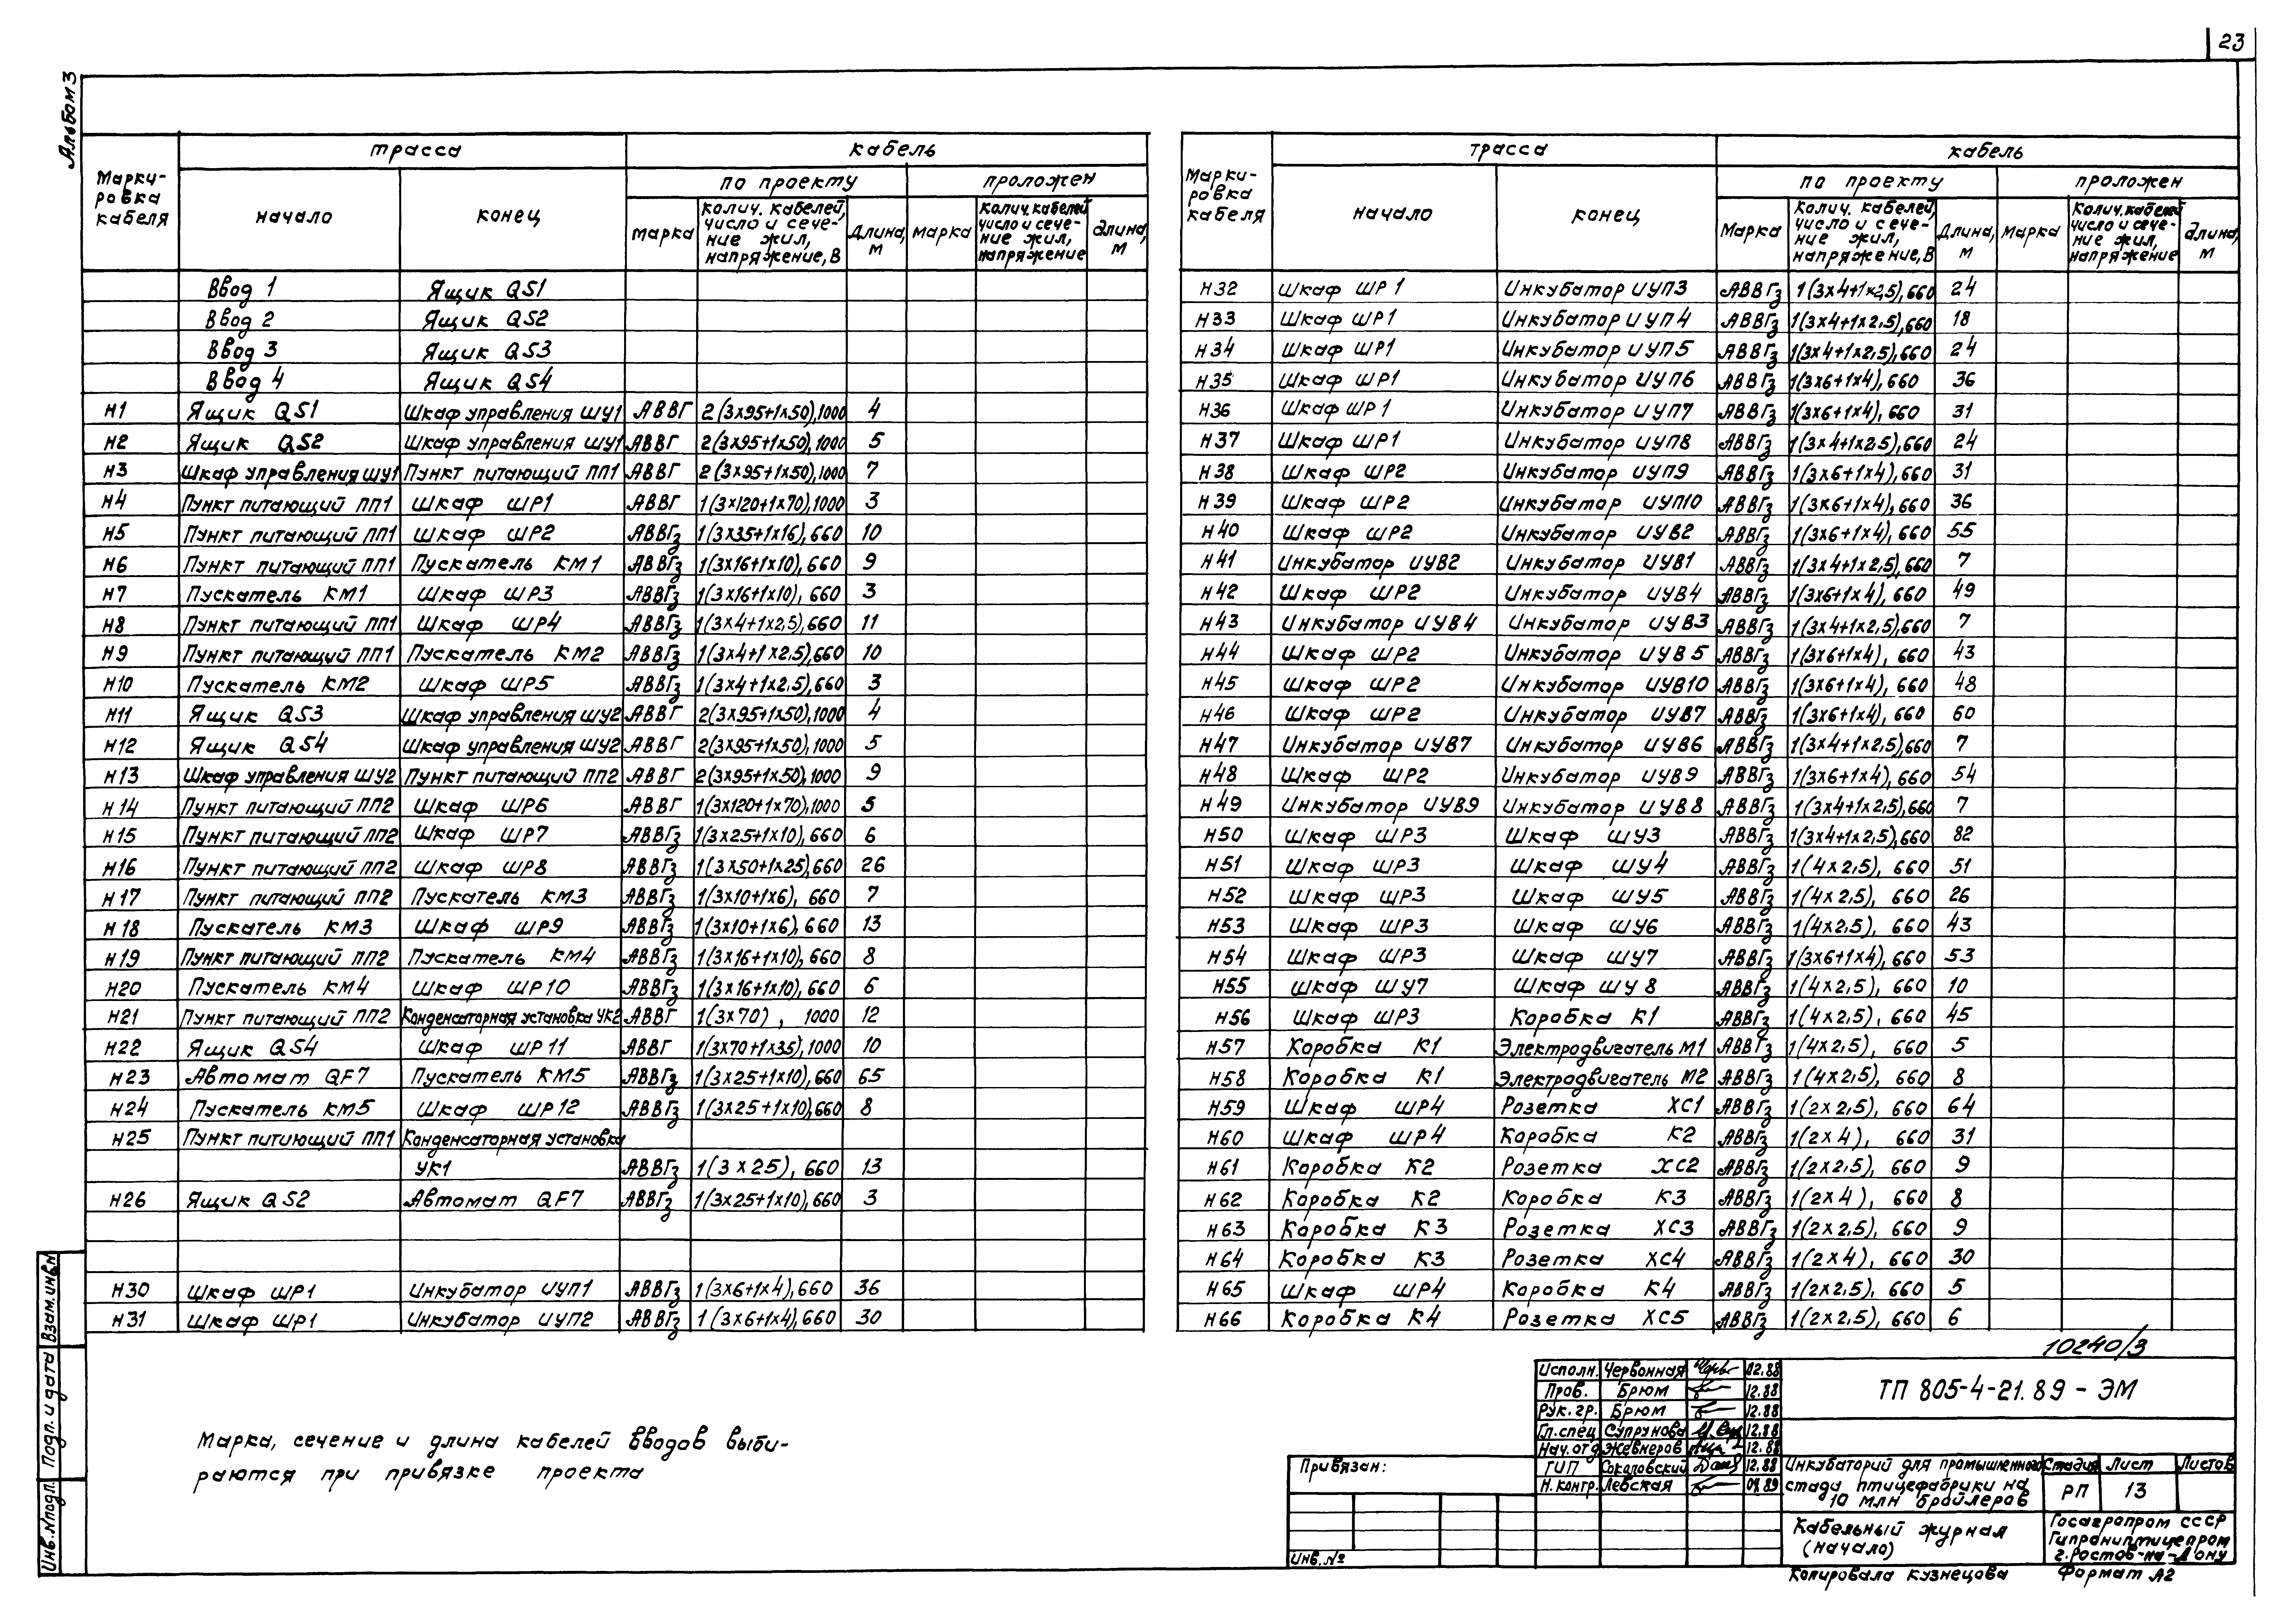 23
Альбом 3
Марки-
ровка
кабеля
трасса
кабель
начало
конец
по проекту
проложен
марка
колич. кабелей,
число и сече-
ние жил,
напряжение, В
Длина,
м
марка
колич. кабелей
число и сече-
ние жил,
напряжение
длина,
м
Ввод 1 Ящик QS1
Ввод 2 Ящик QS2
Ввод 3 Ящик QS3
Ввод 4 Ящик QS4
Н1 Ящик QS1 Шкаф управления ШУ1 АВВГ 2(3x95+1x50),1000 4
Н2 Ящик QS2 Шкаф управления ШУ1 АВВГ 2(3x95+1x50),1000 5
Н3 Шкаф управления ШУ1 Пункт питающий ПП1 АВВГ 2(3x95+1x50),1000 7
Н4 Пункт питающий ПП1 Шкаф ШР1 АВВГ 1(3x120+1x70),1000 3
Н5 Пункт питающий ПП1 Шкаф ШР2 АВВГз 1(3x35+1x16),660 10
Н6 Пункт питающий ПП1 Пускатель КМ1 АВВГз 1(3x16+1x10),660 9
Н7 Пускатель КМ1 Шкаф ШР3 АВВГз 1(3x16+1x10),660 3
Н8 Пункт питающий ПП1 Шкаф ШР4 АВВГз 1(3x4+1x2,5),660 11
Н9 Пункт питающий ПП1 Пускатель КМ2 АВВГз 1(3x4+1x2,5),660 10
Н10 Пускатель КМ2 Шкаф ШР5 АВВГз 1(3x4+1x2,5),660 3
Н11 Ящик QS3 Шкаф управления ШУ2 АВВГ 2(3x95+1x50),1000 4
Н12 Ящик QS4 Шкаф управления ШУ2 АВВГ 2(3x95+1x50),1000 5
Н13 Шкаф управления ШУ2 Пункт питающий ПП2 АВВГ 2(3x95+1x50),1000 9
Н14 Пункт питающий ПП2 Шкаф ШР6 АВВГ 1(3x120+1x70),1000 5
Н15 Пункт питающий ПП2 Шкаф ШР7 АВВГз 1(3x25+1x10),660 6
Н16 Пункт питающий ПП2 Шкаф ШР8 АВВГз 1(3x50+1x25),660 26
Н17 Пункт питающий ПП2 Пускатель КМ3 АВВГз 1(3x10+1x6), 660 7
Н18 Пускатель КМ3 Шкаф ШР9 АВВГз 1(3x10+1x6), 660 13
Н19 Пункт питающий ПП2 Пускатель КМ4 АВВГз 1(3x16+1x10),660 8
Н20 Пускатель КМ4 Шкаф ШР10 АВВГз 1(3x16+1x10),660 6
Н21 Пункт питающий ПП2 Конденсаторная установка УК2 АВВГ 1(3x70), 1000 12
Н22 Ящик QS4 Шкаф ШР11 АВВГ 1(3x70+1x35),1000 10
Н23 Автомат QF7 Пускатель КМ5 АВВГз 1(3x25+1x10),660 65
Н24 Пускатель КМ5 Шкаф ШР12 АВВГз 1(3x25+1x10),660 8
Н25 Пункт питиющий ПП1 Конденсаторная установка
УК1 АВВГз 1(3x25), 660 13
Н26 Ящик QS2 Автомат QF7 АВВГз 1(3x25+1x10),660 3
Н30 Шкаф ШР1 Инкубатор ИУП1 АВВГз 1(3x6+1x4),660 36
Н31 Шкаф ШР1 Инкубатор ИУП2 АВВГз 1(3x6+1x4),660 30
Марки-
ровка
кабеля
трасса
кабель
начало
конец
по проекту
проложен
Марка
колич. кабелей,
число и сече-
ние жил,
напряжение, В
Длина,
м
марка
колич. кабелей
число и сече-
ние жил,
напряжение
длина,
м
Н32 Шкаф ШР1 Инкубатор ИУП3 АВВГз 1(3x4+1x2,5),660 24
Н33 Шкаф ШР1 Инкубатор ИУП4 АВВГз 1(3x4+1x2,5),660 18
Н34 Шкаф ШР1 Инкубатор ИУП5 АВВГз 1(3x4+1x2,5),660 24
Н35 Шкаф ШР1 Инкубатор ИУП6 АВВГз 1(3x6+1x4),660 36
Н36 Шкаф ШР1 Инкубатор ИУП7 АВВГз 1(3x6+1x4),660 31
Н37 Шкаф ШР1 Инкубатор ИУП8 АВВГз 1(3x4+1x2,5),660 24
Н38 Шкаф ШР2 Инкубатор ИУП9 АВВГз 1(3x6+1x4),660 31
Н39 Шкаф ШР2 Инкубатор ИУП10 АВВГз 1(3x6+1x4),660 36
Н40 Шкаф ШР2 Инкубатор ИУВ2 АВВГз 1(3x6+1x4),660 55
Н41 Инкубатор ИУВ2 Инкубатор ИУВ1 АВВГз 1(3x4+1x2,5),660 7
Н42 Шкаф ШР2 Инкубатор ИУВ4 АВВГз 1(3x6+1x4),660 49
Н43 Инкубатор ИУВ4 Инкубатор ИУВ3 АВВГз 1(3x4+1x2,5),660 7
Н44 Шкаф ШР2 Инкубатор ИУВ5 АВВГз 1(3x6+1x4), 660 43
Н45 Шкаф ШР2 Инкубатор ИУВ10 АВВГз 1(3x6+1x4), 660 48
Н46 Шкаф ШР2 Инкубатор ИУВ7 АВВГз 1(3x6+1x4), 660 60
Н47 Инкубатор ИУВ7 Инкубатор ИУВ6 АВВГз 1(3x4+1x2,5),660 7
Н48 Шкаф ШР2 Инкубатор ИУВ9 АВВГз 1(3x6+1x4),660 54
Н49 Инкубатор ИУВ9 Инкубатор ИУВ8 АВВГз 1(3x4+1x2,5),660 7
Н50 Шкаф ШР3 Шкаф ШУ3 АВВГз 1(3x4+1x2,5),660 82
Н51 Шкаф ШР3 Шкаф ШУ4 АВВГз 1(4x2,5), 660 51
Н52 Шкаф ШР3 Шкаф ШУ5 АВВГз 1(4x2,5), 660 26
Н53 Шкаф ШР3 Шкаф ШУ6 АВВГз 1(4x2,5), 660 43
Н54 Шкаф ШР3 Шкаф ШУ7 АВВГз 1(3x6+1x4),660 53
Н55 Шкаф ШУ7 Шкаф ШУ8 АВВГз 1(4x2,5), 660 10
Н56 Шкаф ШР3 Коробка К1 АВВГз 1(4x2,5), 660 45
Н57 Коробка К1 Электродвигатель М1 АВВГз 1(4x2,5), 660 5
Н58 Коробка К1 Электродвигатель М2 АВВГз 1(4x2,5), 660 8
Н59 Шкаф ШР4 Розетка ХС1 АВВГз 1(2x2,5), 660 64
Н60 Шкаф ШР4 Коробка К2 АВВГз 1(2x4), 660 31
Н61 Коробка К2 Розетка ХС2 АВВГз 1(2x2,5), 660 9
Н62 Коробка К2 Коробка К3 АВВГз 1(2x4), 660 8
Н63 Коробка К3 Розетка ХС3 АВВГз 1(2x2,5), 660 9
Н64 Коробка К3 Розетка ХС4 АВВГз 1(2x4), 660 30
Н65 Шкаф ШР4 Коробка К4 АВВГз 1(2x2,5), 660 5
Н66 Коробка К4 Розетка ХС5 АВВГз 1(2x2,5), 660 6
Марка, сечение и длина кабелей вводов выби-
раются при привязке проекта
10240/3
Исполн. Червонная 12.88
Пров. Брюм 12.88
Рук. гр. Брюм 12.88
Гл. спец Супрунова 12.88
Нач. отд Жевнеров 12.88
ГИП Сокаловский 12.88
Н. контр. Левская 01.89
ТП 805-4-21.89 - ЭМ
Привязан:
Инв. №
Инкубаторий для промышленного
стада птицефабрики на
10 млн бройлеров
Стадия Лист Листов
РП 13
Кабельный журнал
(начало)
Госагропром СССР
Гипрониптицепром
г. Ростов-на-Дону
Копировала Кузнецова Формат А2
Взам. инв. №
Подп. и дата
Инв. № подл.